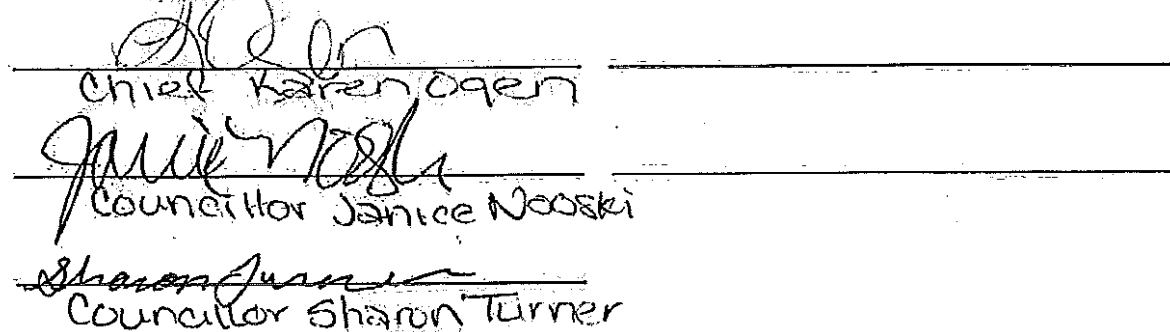 Chief Karen Ogen
Councillor Janice Nooski
Sharon Turner
Councillor Sharon Turner